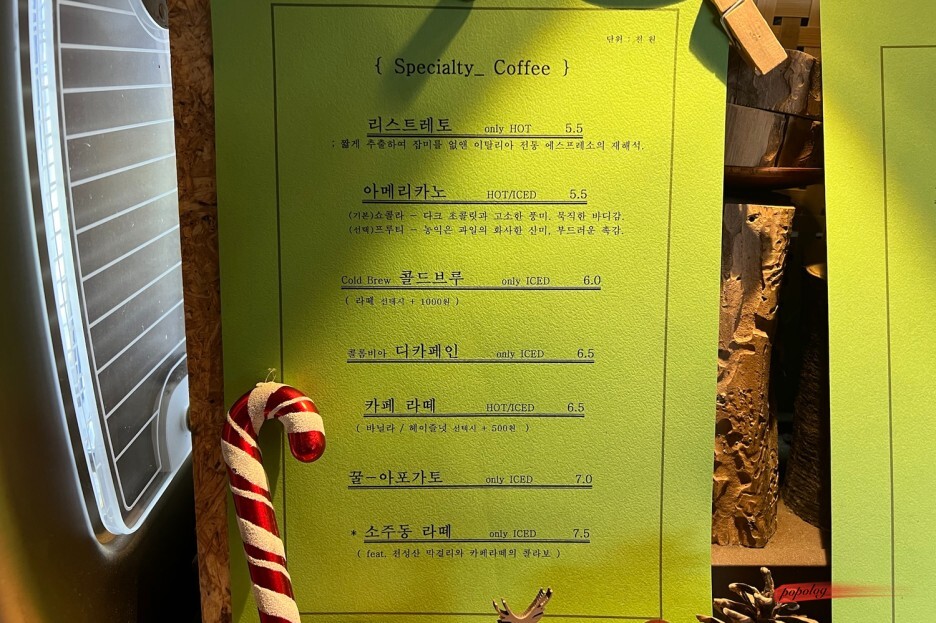 단위 : 천 원
{ Specialty_ Coffee }
리스트레토 only HOT 5.5
: 짧게 추출하여 잡미를 없앤 이탈리아 전통 에스프레소의 재해석.
아메리카노 HOT/ICED 5.5
(기본)쇼콜라 - 다크 초콜릿과 고소한 풍미, 묵직한 바디감.
(선택)프루티 - 농익은 과일의 화사한 산미, 부드러운 촉감.
Cold Brew 콜드브루 only ICED 6.0
( 라떼 선택시 + 1000원 )
콜롬비아 디카페인 only ICED 6.5
카페 라떼 HOT/ICED 6.5
( 바닐라 / 헤이즐넛 선택시 + 500원 )
꿀-아포가토 only ICED 7.0
* 소주동 라떼 only ICED 7.5
( feat. 천성산 막걸리와 카페라떼의 콜라보 )
popolog